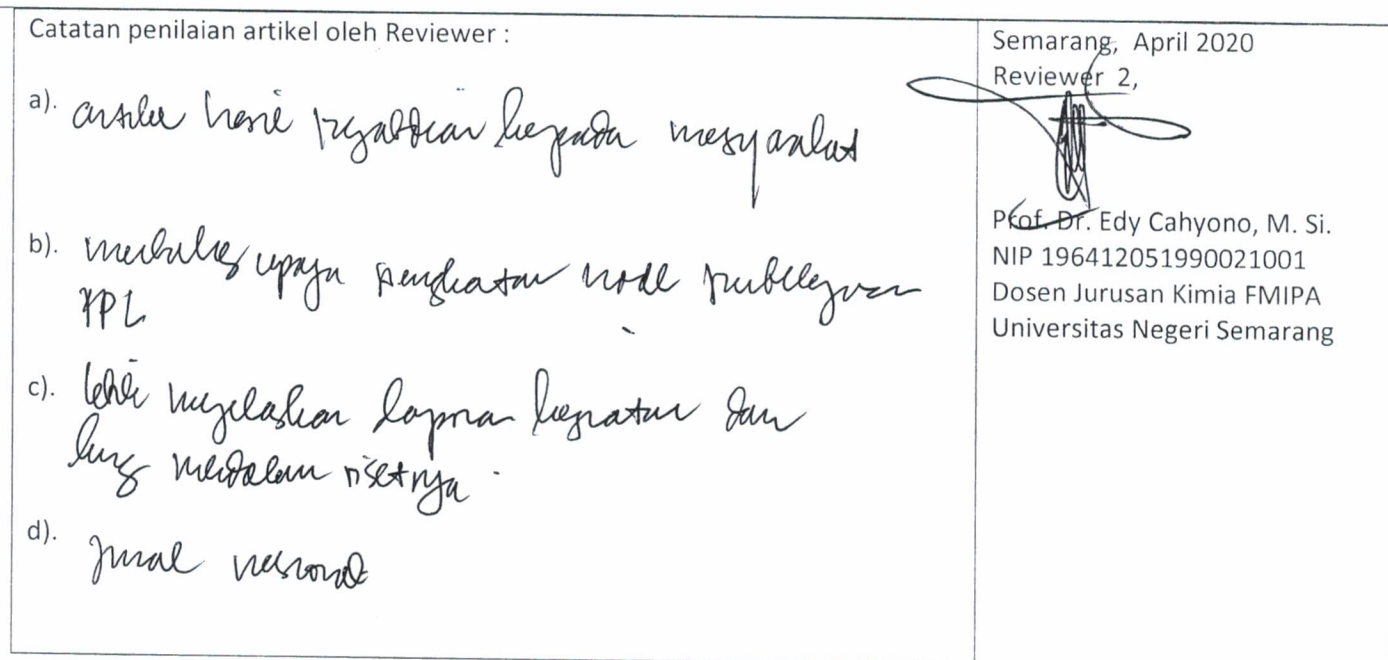 Catatan penilaian artikel oleh Reviewer :
a). artikel hasil pengabdian kepada masyarakat
b). membahas upaya peningkatan model pembelajaran
c). lebih menjelaskan laporan kegiatan dan
kurang mendalam risetnya
d). jurnal nasional
Semarang, April 2020
Reviewer 2,
Prof. Dr. Edy Cahyono, M. Si.
NIP 196412051990021001
Dosen Jurusan Kimia FMIPA
Universitas Negeri Semarang